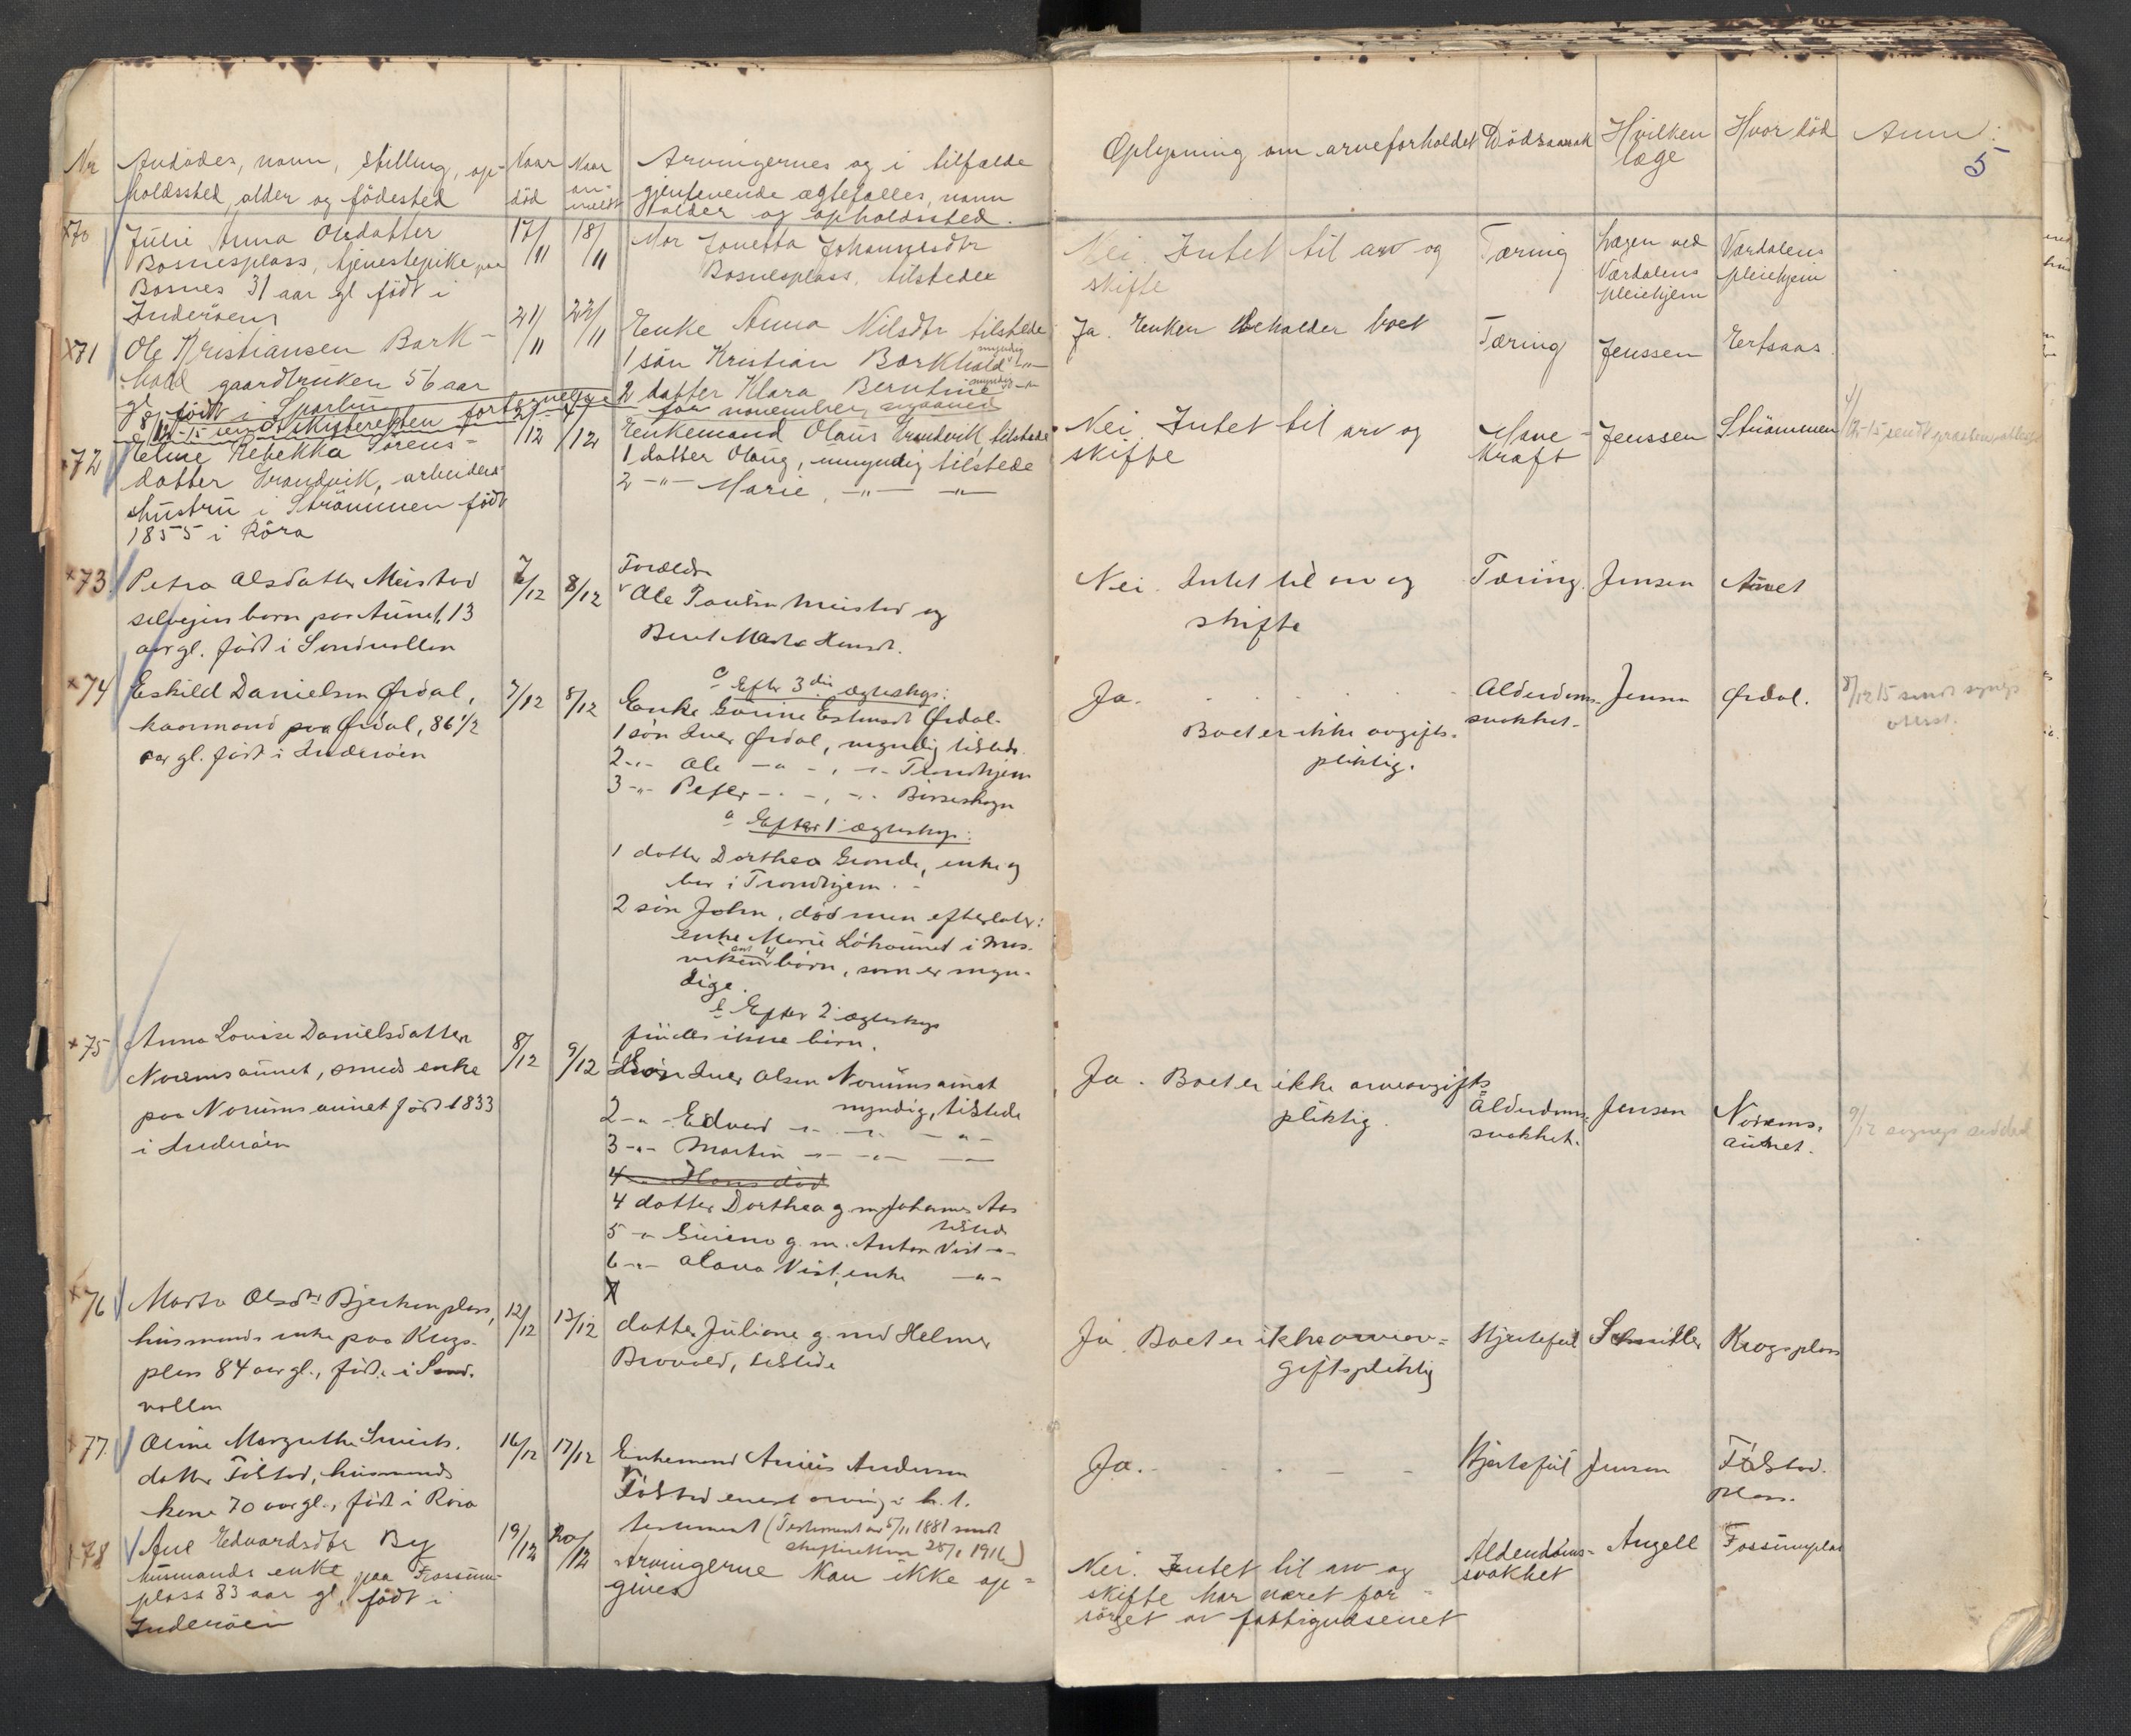 Nr
Avdödes, navn, stilling, op-
holdssted, alder og födested
Naar
död
Naar
an-
meldt
Arvingernes og i tilfælde
gjenlevende ægtefælles, navn
alder og opholdssted.
Oplysning om arveforholdet
Dödsaarsak
Hvilken
læge
Hvor död
Anm:
5
x70
Julie Anna Olsdatter
Bosnesplass, tjenestepike paa
Bosnes 31 aar gl födt i
Inderöen
17/11
18/11
Mor Jonetta Johannesdtr
Bosnesplass, tilstede
Nei. Intet til arv og
skifte
Tæring
Lægen ved
Værdalens
pleiehjem
Værdalens
pleiehjem
x71
Ole Kristiansen Bark-
hald gaardbruker 56 aar
gl. födt i Sparbu
21/11
22/11
Enke Anna Nilsdtr tilstede
1 sön Kristian Barkhald myndig -"-
2 datter Klara Berntine myndig -"-
Ja. Enken beholder boet
Tæring
Jenssen
Ertsaas.
8/12-15 sendt skifteretten fortegnelse
for november maaned
x72
Eline Rebekka Sörens-
datter Trandvik, arbeiders
hustru i Strömmen födt
1855 i Röra
2/12
4/12
Enkemand Olaus Trandvik, tilstede
1 datter Olaug, umyndig tilstede
2 -"- Marie, -"- -"-
Nei. Intet til arv og
skifte
Mave-
kræft
Jenssen
Strömmen
4/12-15 sendt
x73
Petra Olsdatter Meistad
selveiers barn paa Aunet, 13
aar gl. födt i Sandvollan
7/12
8/12
Forældre
Ole Paulsen Meistad og
Beret Marta Hansdt.
Nei. Intet til arv og
skifte
Tæring.
Jensen
Aunet
x74
Eskild Danielsen Ørdal,
kaarmand paa Ørdal, 86 1/2
aar gl. födt i Inderöen
7/12
8/12
c Efter 3die ægteskap:
Enke Gurine Ørdal.
1 sön Iver Ørdal, myndig tilstede
2 -"- Ole -"- -, -"- Trondhjem
3 -"- Peter -"- -, -"-
a Efter 1 ægteskap:
1 datter Dorthea Grande, enke og
bor i Trondhjem. -
2 sön John, död men efterlater:
enke Marie i Mos-
viken ant 4 börn, som er myn-
dige.
b Efter 2 ægteskap
findes ikke börn.
Ja. - - - - -
Boet er ikke avgifts-
pliktig.
Alderdoms-
svakhet.
Jensen
Ørdal.
8/12 15 sendt
x75
Anna Lovise Danielsdatter
Norumsaunet, smeds enke
paa Norumsaunet födt 1833
i Inderöen
8/12
9/12
1 Sön Iver Olsen Norumsaunet
myndig, tilstede
2 -"- Edvard -"- -"- -"-
3 -"- Martin -"- -"- -"-
4 -"- Hans död
4 datter Dorthea g m Johannes Aas
tilstede
5 -"- Gurine g. m. Anton Vist -"-
6 -"- Olava Vist, enke -"-
7
Ja. Boet er ikke arveavgifts
pliktig.
Alderdoms-
svakhet.
Jensen
Norums-
aunet.
9/12
x76
Marta Olsdtr Bjerkenplass,
husmands enke paa Krogs-
plass 84 aar gl., födt i Sand-
vollan
12/12
13/12
datter Juliane g. med Helmer
Bravold, tilstede
Ja. Boet er ikke arveav-
giftspliktig
Hjertefeil
Schnitler
Krogsplass
x77.
Oline Margrethe
datter Følstad, husmands
kone 70 aar gl., födt i Röra
16/12
17/12
Enkemand Andersen
Følstad eneste arving i h. t.
testament (Testament av 5/11 1881 sendt
skifteretten 25/1 1916)
Ja. - - - -
Hjertefeil
Jensen
Følstad.
plass.
x78
Ane Edvardsdtr By
husmands enke paa Fossum-
plass 83 aar gl. födt i
Inderöen
19/12
20/12
Arvingerne kan ikke op-
gives
Nei. Intet til arv og
skifte har været for-
sörget av fattigvæsenet
Alderdoms-
svakhet
Angell
Fossumplass